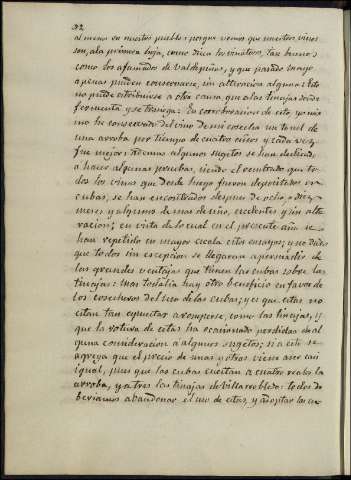 32
al menos en nuestro pueblo; porque vemos que nuestros vinos
son, a la primera hoja, como dicen los vinateros, tan buenos
como los afamados de Valdepeñas, y que pasado mayo
apenas pueden conservarse, sin alteracion alguna: Esto
no puede atribuirse a otra causa que a las tinajas donde
fermenta y se trasiega: En corroboracion de esto, yo mis-
mo he conservado del vino de mi cosecha un tonel de
una arroba por tiempo de cuatro años y cada vez
fue mejor: Ademas algunos sugetos se han dedicado
a hacer algunas pruebas, siendo el resultado que to-
dos los vinos que desde luego fueron depositados en
cubas, se han encontrado despues de ocho, o diez
meses y algunos de mas de año, excelentes y sin alte-
racion; en vista de lo cual en el presente año se
han repetido en mayor escala estos ensayos; y no dudo
que todos sin escepcion se llegaran a persuadir de
las grandes ventajas que tienen las cubas sobre las
tinajas: Mas todabia hay otro beneficio en favor de
los cosecheros del uso de las cubas; y es que estas no
estan tan espuestas a romperse, como las tinajas, y
que la rotura de estas ha ocasionado perdidas de al
guna consideracion a algunos sugetos; si a esto se
agrega que el precio de unas y otras viene a ser casi
igual, pues que las cubas cuestan a cuatro reales la
arroba, y a tres las tinajas de Villarrobledo: todos de
beriamos abandonar el uso de estas, y adoptar las cu-